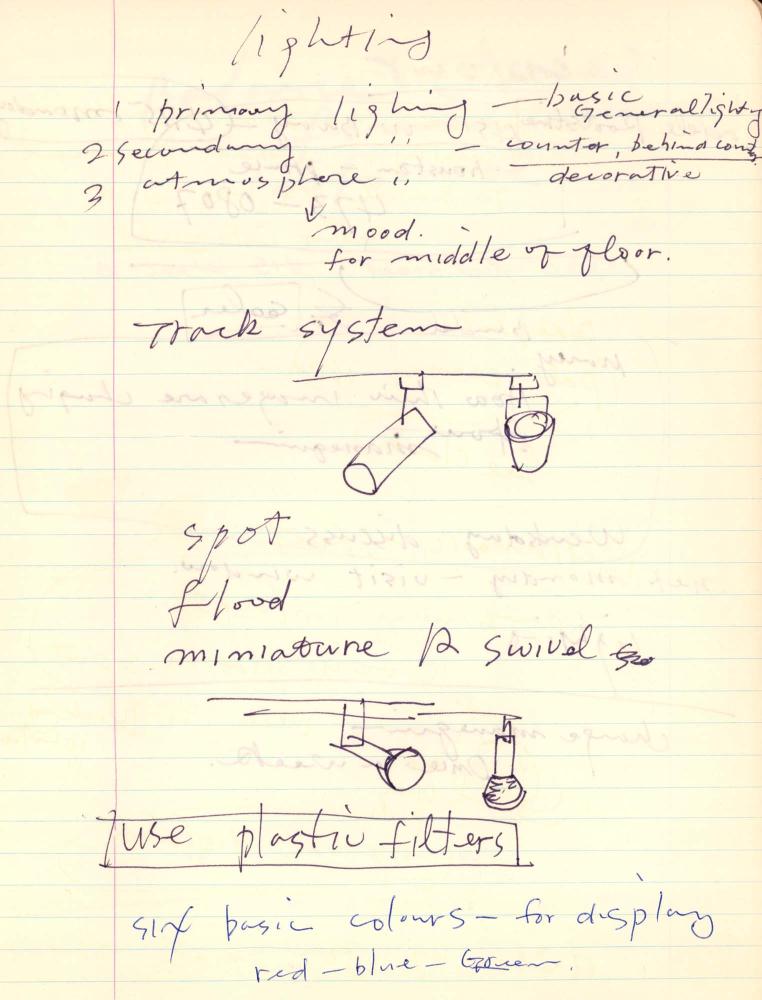 lighting
1 primary lighing — basic General lighty
2 secondary " — counter, behind count
3 atmosphere " decorative
mood.
for middle of floor.
Track system
spot
flood
miniature & swivel
use plastic filters
six basic colours - for display
red - blue - Green.